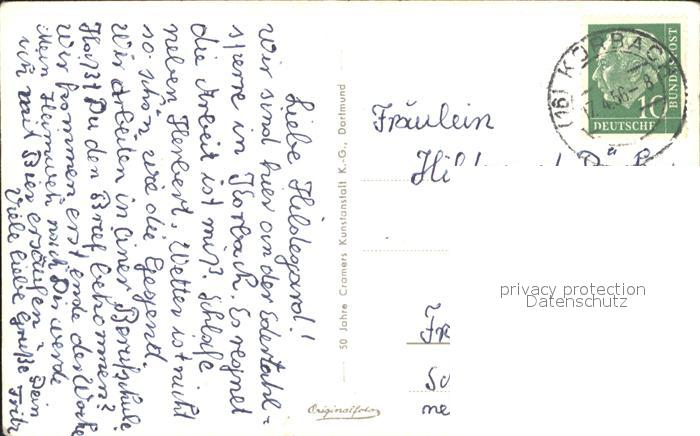 Liebe Hildegard!
Wir sind hier an der Edertahl-
sperre in Korbach. Es regnet
die Arbeit ist miß. Schlafe
neben Herbert. Wetter ist nicht
so schön wie die Gegend.
Wir arbeiten in einer Berufschule
Haßt Du den Brief bekommen?
Wir kommen erst ende der Woche
Mein Heimweh nach Dir werde
ich mit Bier ersäufen. Dein
Viele liebe Grüße Fritz
50 Jahre Cramers Kunstanstalt K.-G., Dortmund
Originalfoto
Fräulein
Fr
me
(16) KORBACH
10
DEUTSCHE
BUNDESPOST
privacy protection
Datenschutz